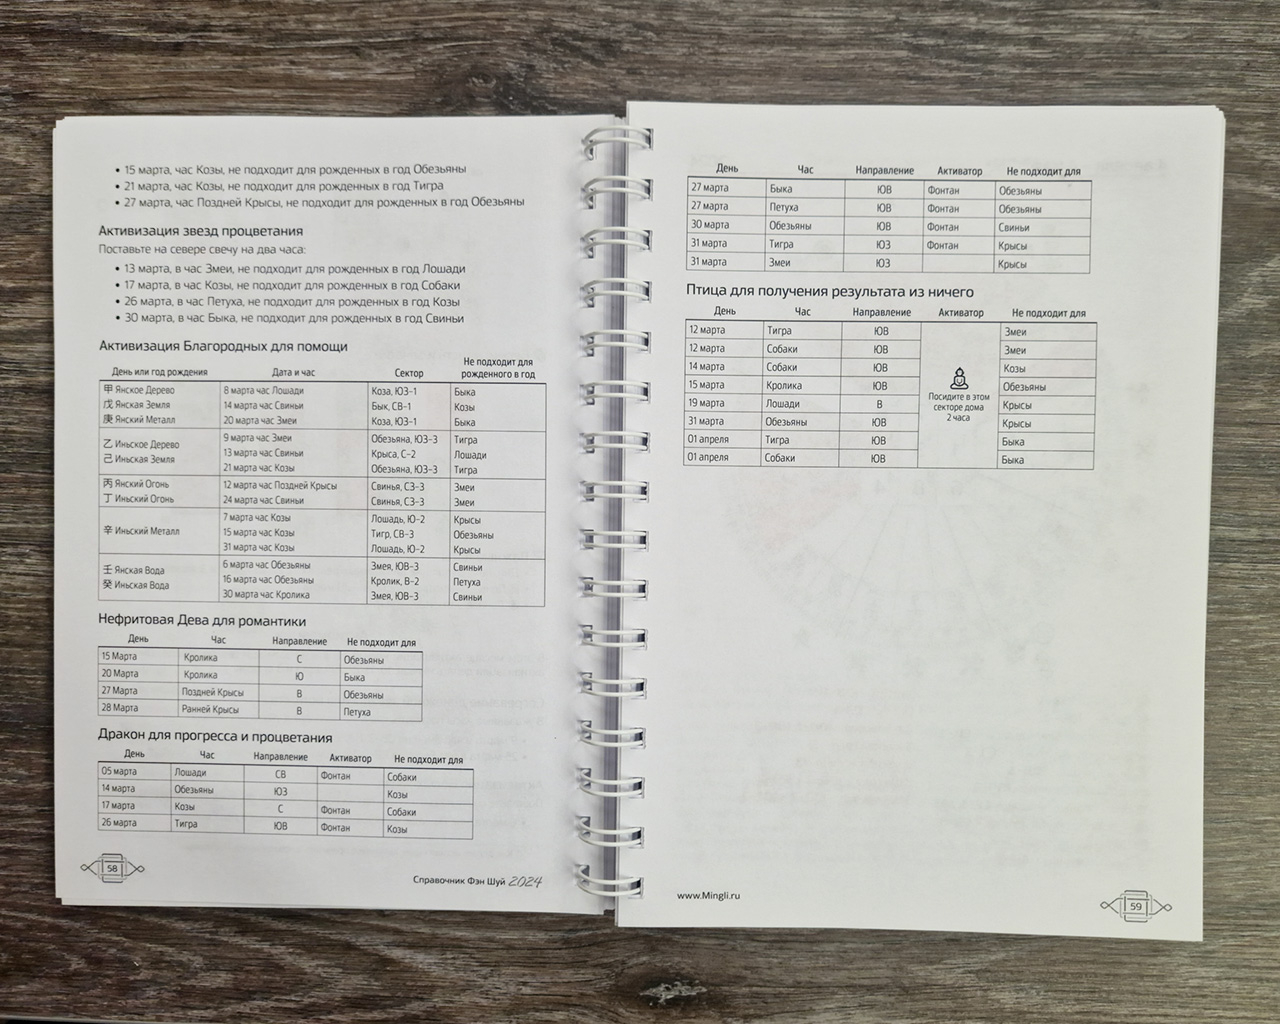 • 15 марта, час Козы, не подходит для рожденных в год Обезьяны
• 21 марта, час Козы, не подходит для рожденных в год Тигра
• 27 марта, час Поздней Крысы, не подходит для рожденных в год Обезьяны
Активизация звезд процветания
Поставьте на севере свечу на два часа:
• 13 марта, в час Змеи, не подходит для рожденных в год Лошади
• 17 марта, в час Козы, не подходит для рожденных в год Собаки
• 26 марта, в час Петуха, не подходит для рожденных в год Козы
• 30 марта, в час Быка, не подходит для рожденных в год Свиньи
Активизация Благородных для помощи
День или год рождения Дата и час Сектор Не подходит для рожденного в год
甲 Янское Дерево 8 марта час Лошади Коза, ЮЗ-1 Быка
戊 Янская Земля 14 марта час Свиньи Бык, СВ-1 Козы
庚 Янский Металл 20 марта час Змеи Коза, ЮЗ-1 Быка
乙 Иньское Дерево 9 марта час Змеи Обезьяна, ЮЗ-3 Тигра
己 Иньская Земля 13 марта час Свиньи Крыса, С-2 Лошади
21 марта час Козы Обезьяна, ЮЗ-3 Тигра
丙 Янский Огонь 12 марта час Поздней Крысы Свинья, СЗ-3 Змеи
丁 Иньский Огонь 24 марта час Свиньи Свинья, СЗ-3 Змеи
7 марта час Козы Лошадь, Ю-2 Крысы
辛 Иньский Металл 15 марта час Козы Тигр, СВ-3 Обезьяны
31 марта час Козы Лошадь, Ю-2 Крысы
6 марта час Обезьяны Змея, ЮВ-3 Свиньи
壬 Янская Вода 16 марта час Обезьяны Кролик, В-2 Петуха
癸 Иньская Вода 30 марта час Кролика Змея, ЮВ-3 Свиньи
Нефритовая Дева для романтики
День Час Направление Не подходит для
15 Марта Кролика С Обезьяны
20 Марта Кролика Ю Быка
27 Марта Поздней Крысы В Обезьяны
28 Марта Ранней Крысы В Петуха
Дракон для прогресса и процветания
День Час Направление Активатор Не подходит для
05 марта Лошади СВ Фонтан Собаки
14 марта Обезьяны ЮЗ Козы
17 марта Козы С Фонтан Собаки
26 марта Тигра ЮВ Фонтан Козы
58
Справочник Фэн Шуй 2024
День Час Направление Активатор Не подходит для
27 марта Быка ЮВ Фонтан Обезьяны
27 марта Петуха ЮВ Фонтан Обезьяны
30 марта Обезьяны ЮВ Фонтан Свиньи
31 марта Тигра ЮЗ Фонтан Крысы
31 марта Змеи ЮЗ Крысы
Птица для получения результата из ничего
День Час Направление Активатор Не подходит для
12 марта Тигра ЮВ Змеи
12 марта Собаки ЮВ Змеи
14 марта Собаки ЮВ Козы
15 марта Кролика ЮВ Обезьяны
19 марта Лошади В Крысы
31 марта Обезьяны ЮВ Крысы
01 апреля Тигра ЮВ Быка
01 апреля Собаки ЮВ Быка
Посидите в этом
секторе дома
2 часа
www.Mingli.ru
59